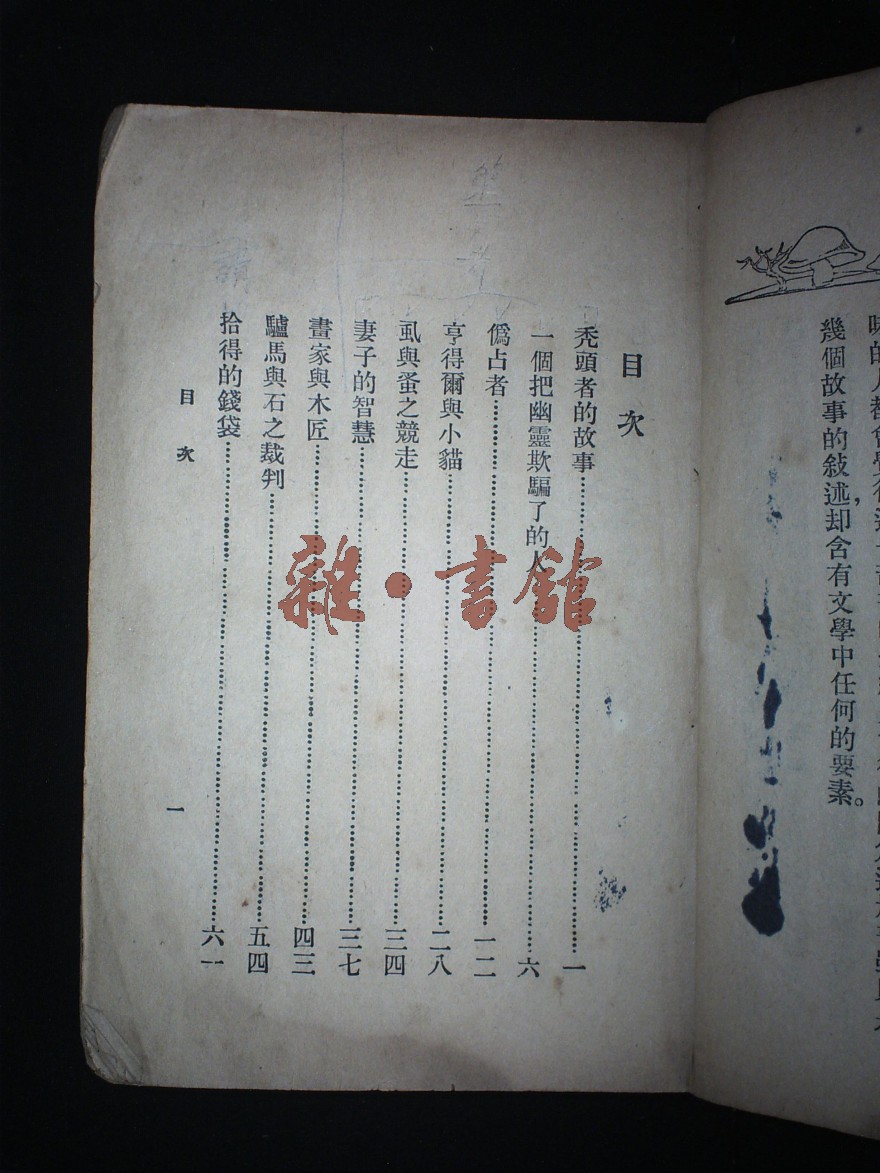 幾個故事的敍述,却含有文學中任何的要素。
目次
禿頭者的故事 一
一個把幽靈欺騙了的人 六
僞占者 一二
亨得爾與小貓 二八
虱與蚤之競走 三四
妻子的智慧 三七
畫家與木匠 四三
驢馬與石之裁判 五四
拾得的錢袋 六一
目次
一
雜·書館